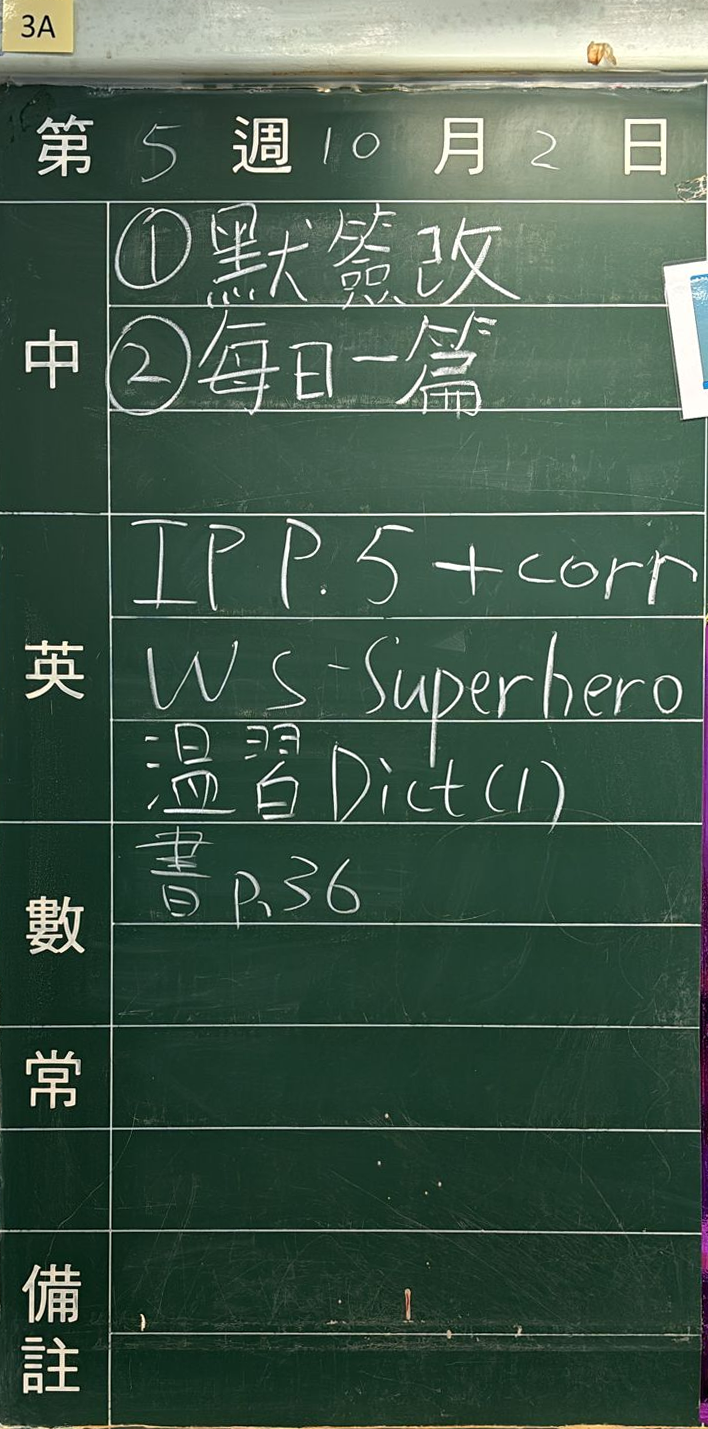 3A
第 5 週 10 月 2 日
中
①默簽改
②每日一篇
英
IP P.5 + corr
WS - Superhero
溫習 Dict (1)
數
書 p.36
常
備註